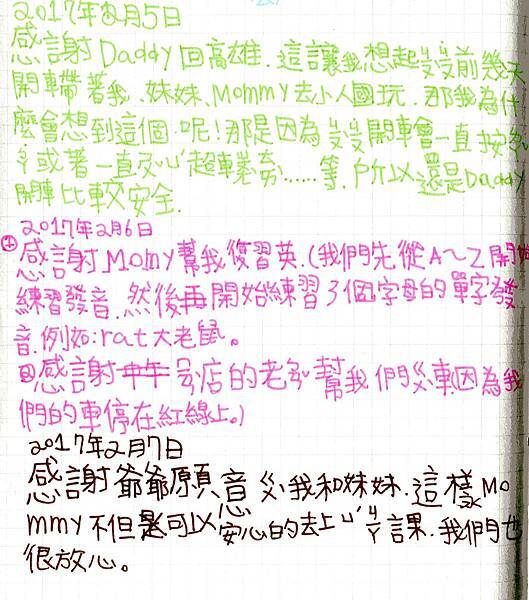 2017年2月5日
感謝Daddy回高雄.這讓我想起ㄐㄧㄡˋㄐㄧㄡ前幾天
開車帶著我、妹妹、Mommy去小人國玩.那我為什
麼會想到這個呢!那是因為 開車會一直按
或著一直 超車 ......等.所以還是Daddy
開車比較安全.
2017年2月6日
感謝Momy幫我復習英.(我們先從A~Z開始
練習發音.然後再開始練習3個字母的單字發
音.例如:rat大老鼠。
感謝 店的老 幫我們 車因為我
們的車停在紅線上。)
2017年2月7日
感謝爺爺願意 我和妹妹.這樣Mo
mmy不但 可以安心的去上 課.我們也
很放心。